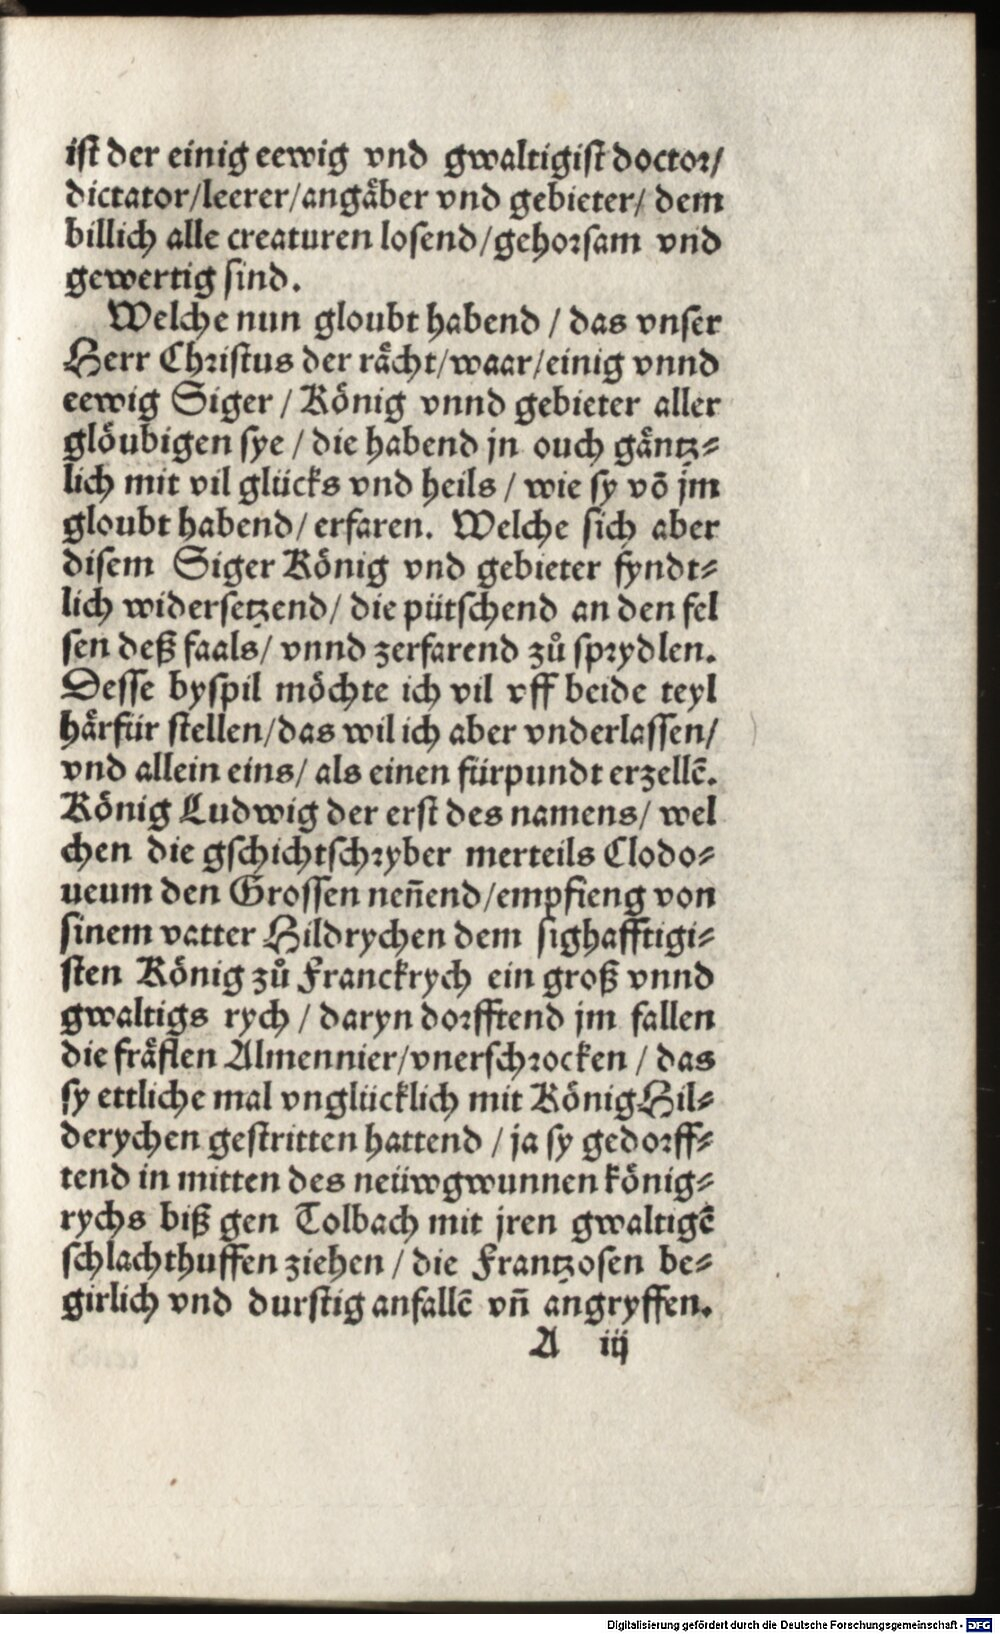 ist der einig eewig vnd gwaltigist doctor/
dictator/leerer/angaͤber vnd gebieter/ dem
billich alle creaturen losend/gehorsam vnd
gewertig sind.
Welche nun gloubt habend / das vnser
Herr Christus der raͤcht/waar/einig vnnd
eewig Siger / Koͤnig vnnd gebieter aller
gloͤubigen sye / die habend jn ouch gaͤntz⸗
lich mit vil gluͤcks vnd heils / wie sy võ jm
gloubt habend/ erfaren. Welche sich aber
disem Siger Koͤnig vnd gebieter fyndt⸗
lich widersetzend/ die puͤtschend an den fel
sen deß faals/ vnnd zerfarend zuͦ sprydlen.
Desse byspil moͤchte ich vil vff beide teyl
haͤrfuͤr stellen/das wil ich aber vnderlassen/
vnd allein eins/ als einen fuͤrpundt erzellẽ.
Koͤnig Ludwig der erst des namens/ wel
chen die gschichtschryber merteils Clodo⸗
ueum den Grossen neñend/empfieng von
sinem vatter Hildrychen dem sighafftigi⸗
sten Koͤnig zuͦ Franckrych ein groß vnnd
gwaltigs rych / daryn dorfftend jm fallen
die fraͤflen Almennier/vnerschrocken / das
sy ettliche mal vngluͤcklich mit Koͤnig Hil⸗
derychen gestritten hattend / ja sy gedorff⸗
tend in mitten des neuͤwgwunnen koͤnig⸗
rychs biß gen Tolbach mit jren gwaltigẽ
schlachthuffen ziehen / die Frantzosen be⸗
girlich vnd durstig anfallẽ vñ angryffen.
A iij
Digitalisierung gefördert durch die Deutsche Forschungsgemeinschaft - DFG